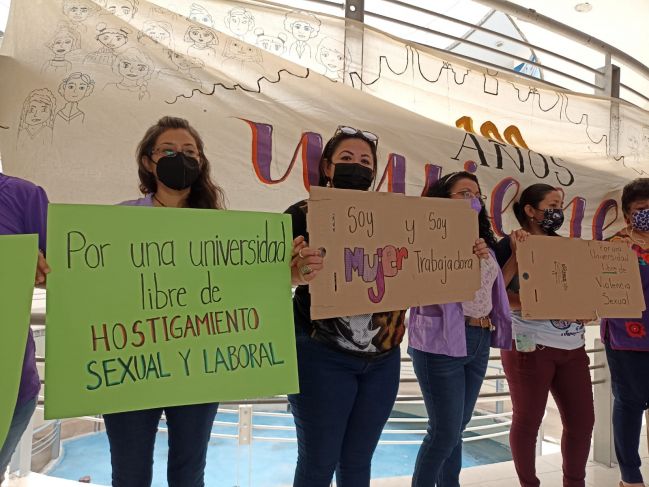 100
AÑOS
Por una universidad
libre de
HOSTIGAMIENTO
SEXUAL Y LABORAL
Soy y Soy
Mujer Trabajadora
Por una
Universidad
libre de
Violencia
Sexual